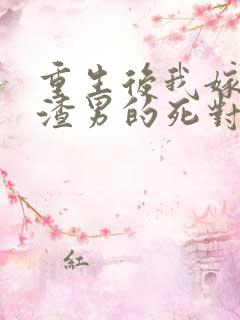 重生後我嫁
渣男的死對
紅